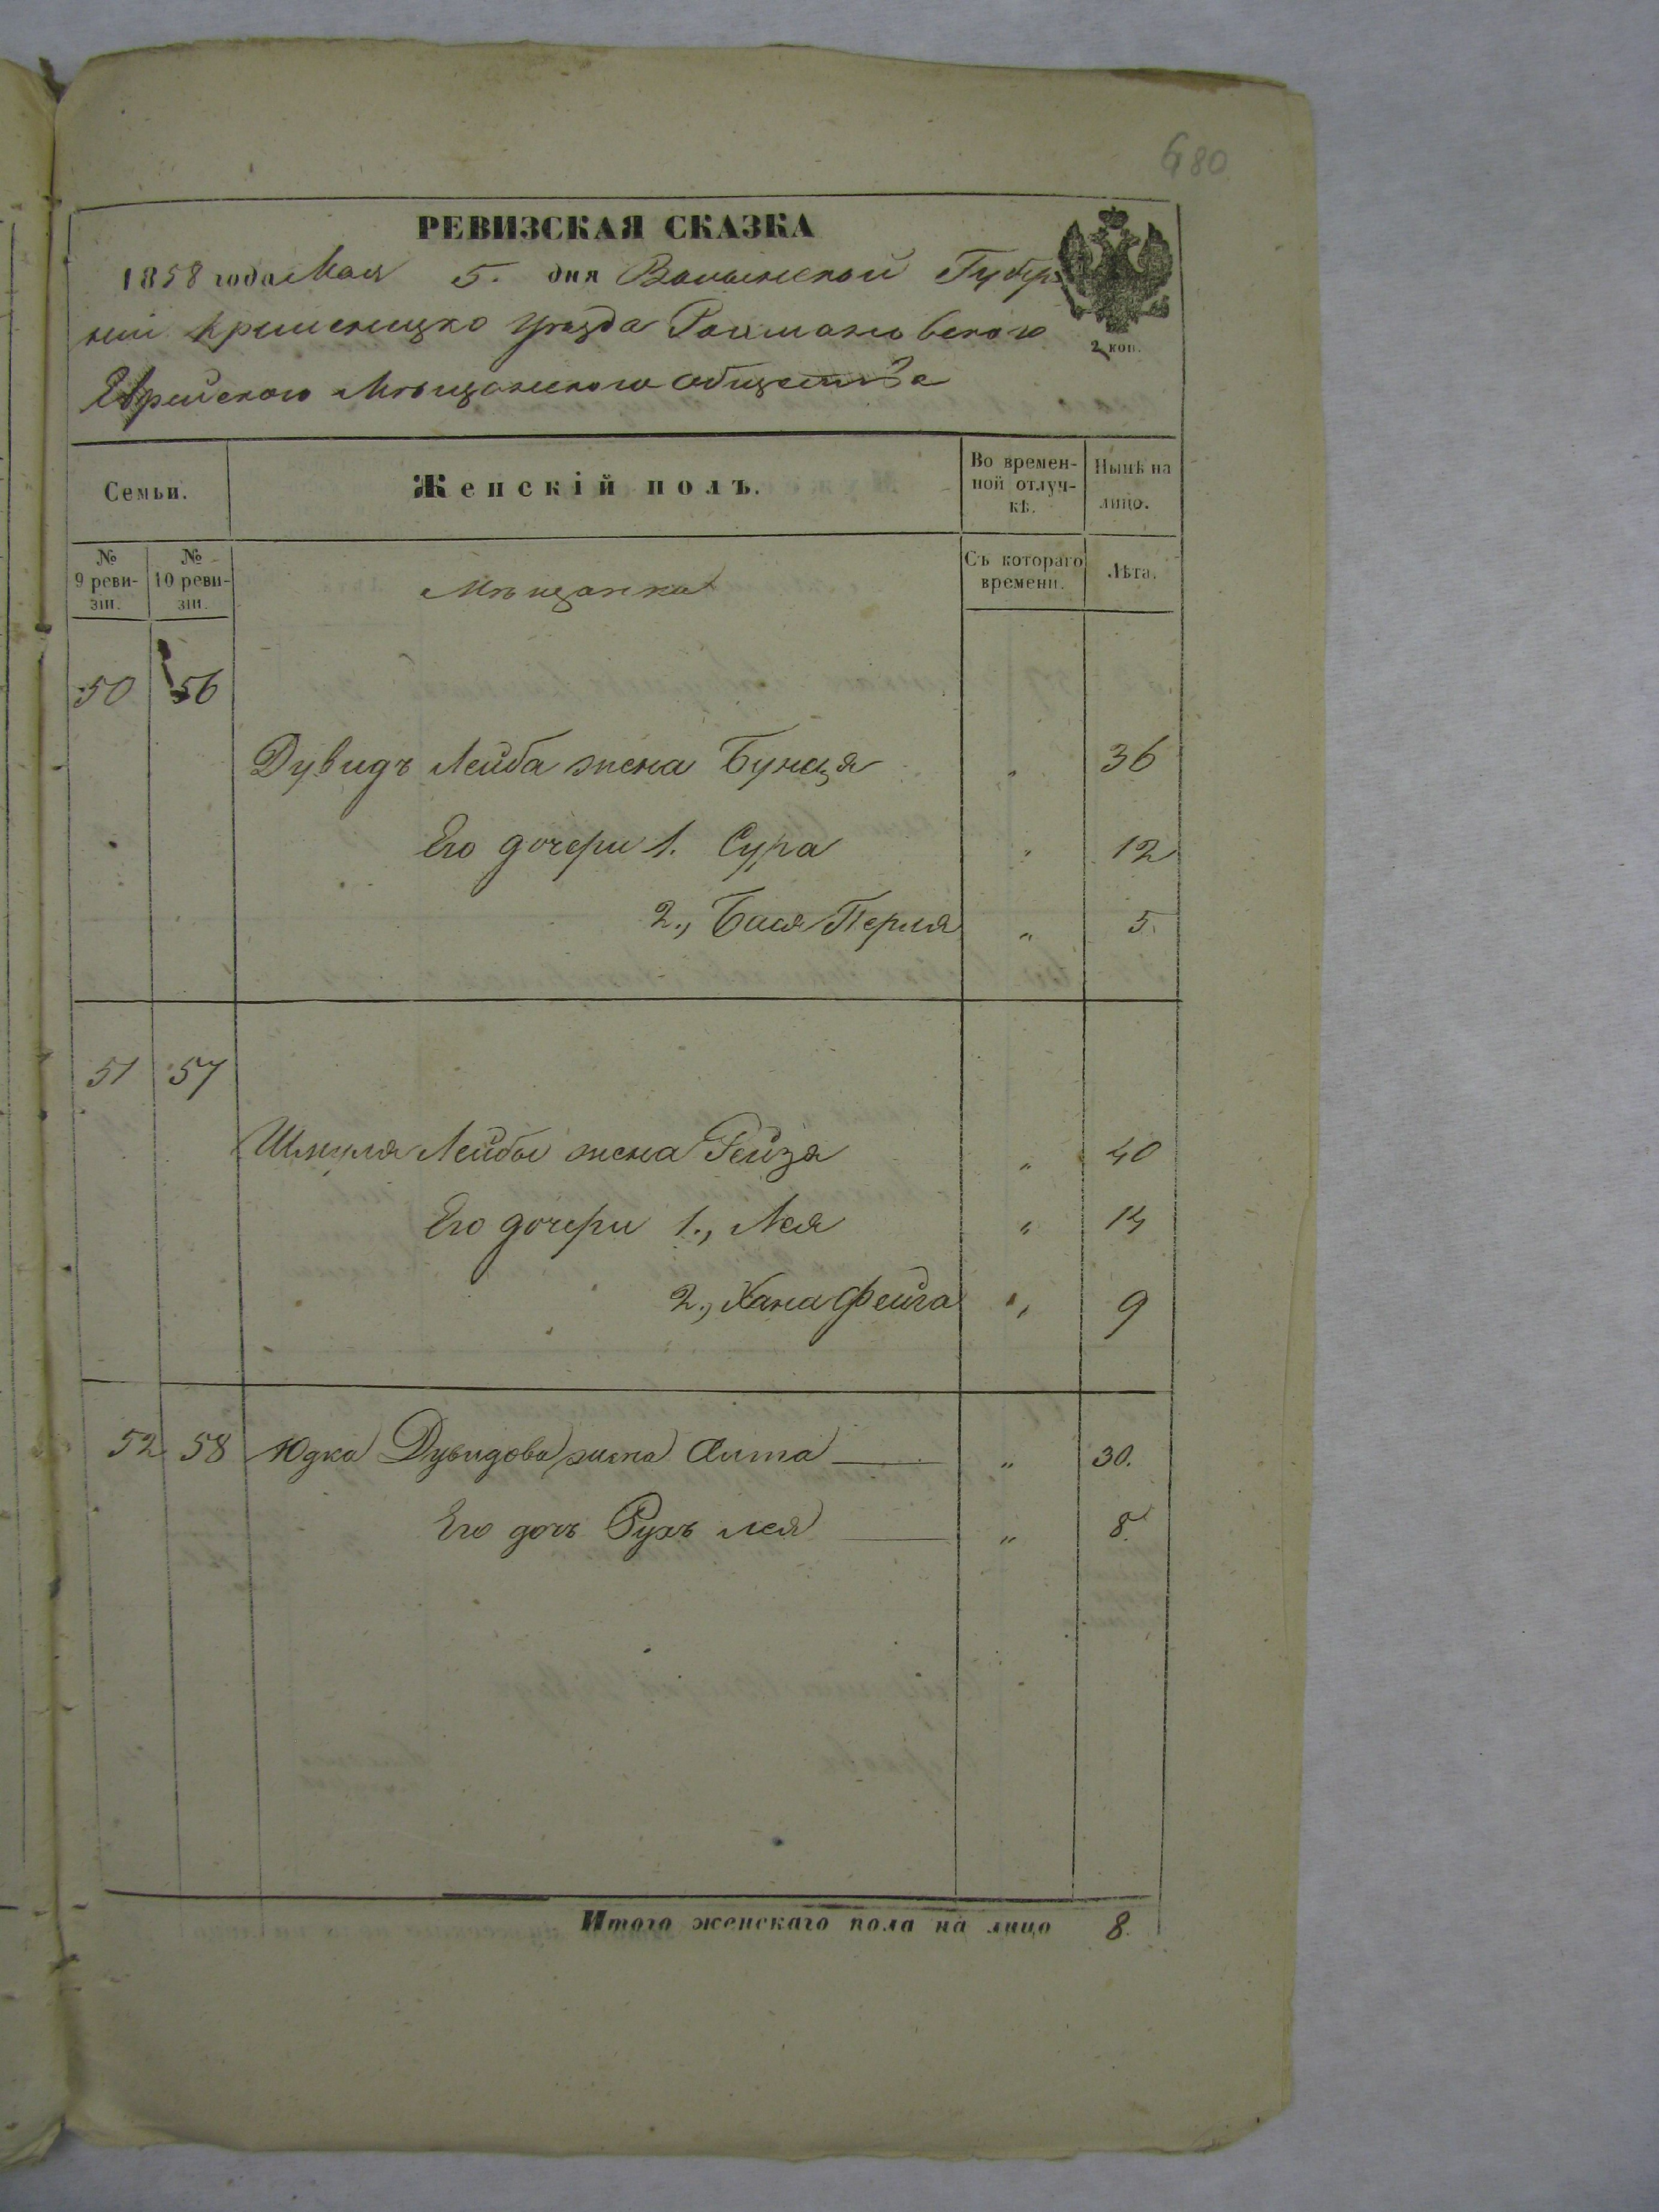 680
РЕВИЗСКАЯ СКАЗКА
1858 года Мая 5. дня Волынской Губер
нии Кременецко Уезда Рохмановского
Еврейского Мѣщанского общества
2 коп.
Семьи.
Женскій полъ.
Во времен-
ной отлуч-
кѣ.
Нынѣ на
лицо.
№
9 реви-
зіи.
№
10 реви-
зіи.
Мѣщанка
Съ котораго
времени.
Лѣта.
50 56
Дувидъ Лейба жена Бунця „ 36
Его дочери 1. Сура „ 12
2., Бася Перля „ 5.
51 57
Шмуля Лейбы жена Рейзя „ 40
Его дочери 1., Лея „ 14
2., Хана Фейга „ 9
52 58 Юдка Дувидова жена Алта „ 30.
Его дочь Рухъ Лея „ 8.
Итого женскаго пола на лицо 8.